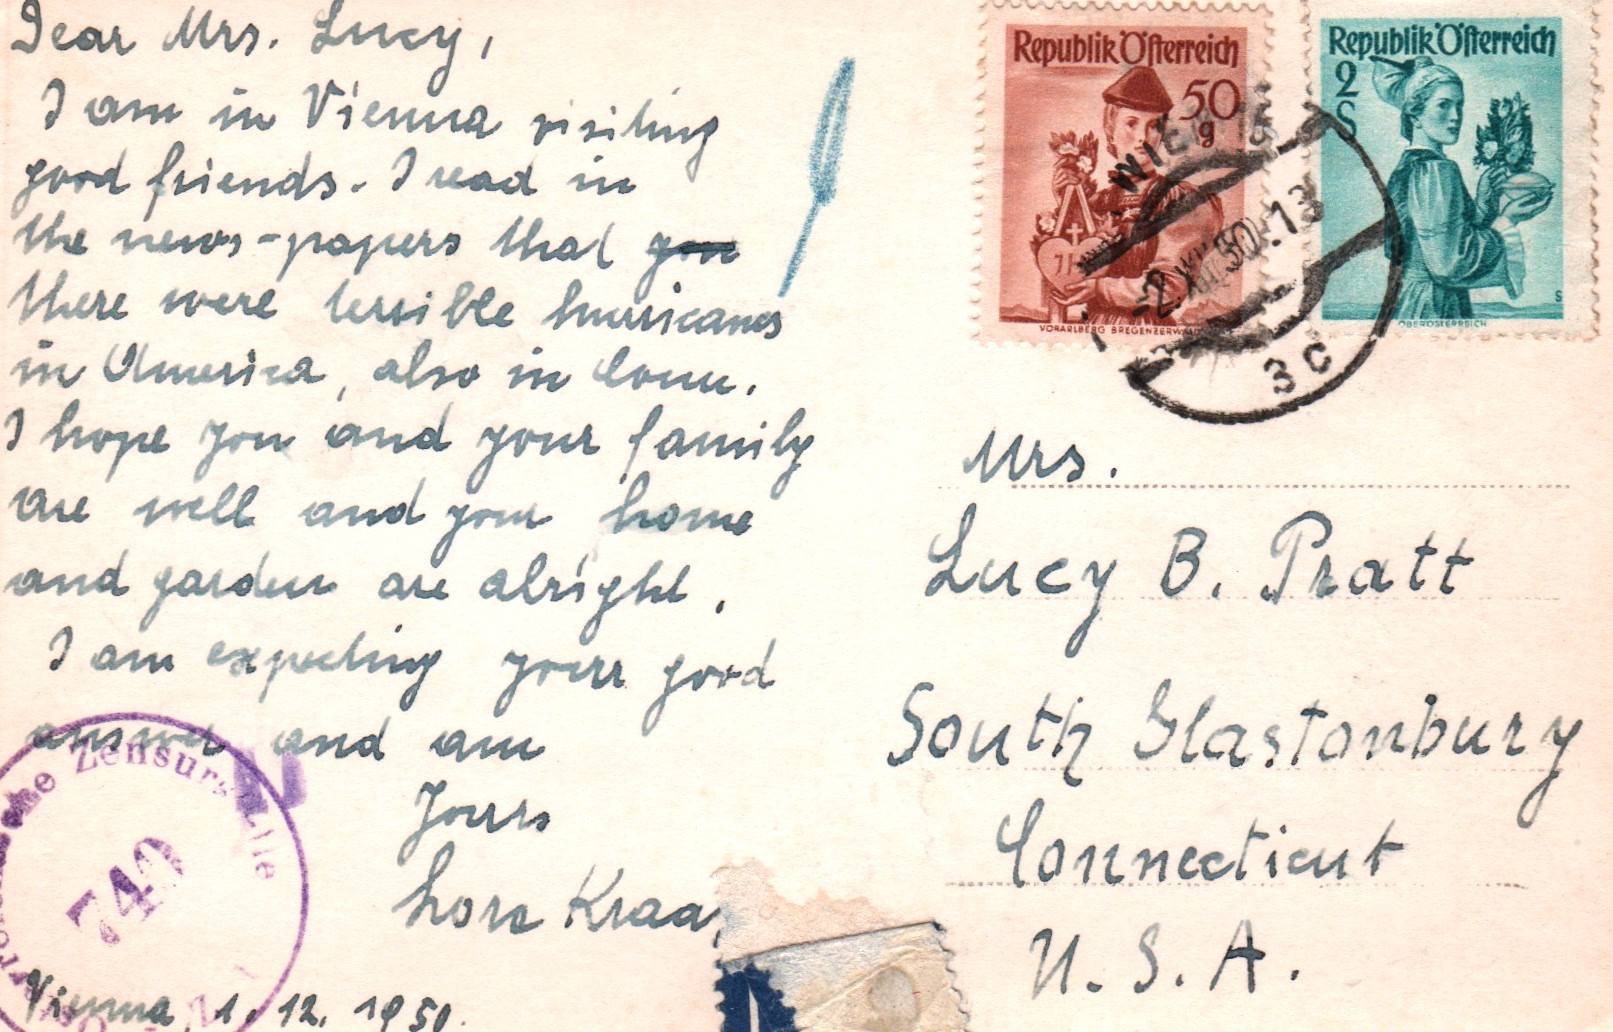 Dear Mrs. Lucy,
I am in Vienna visiting
good friends. I read in
the news-papers that you
there were terrible hurricanes
in America, also in Conn.
I hope you and your family
are well and your home
and garden are alright.
I am expecting your good
answer and am
Yours
Lore Kraa
Vienna, 1. 12. 1950.
Zensurstelle
740
Republik Österreich
50
g
VORARLBERG BREGENZERWA
Republik Österreich
2
S
OBERÖSTERREICH
WIEN
-2.XII.50.13
3c
Mrs.
Lucy B. Pratt
South Glastonbury
Connecticut
U.S.A.